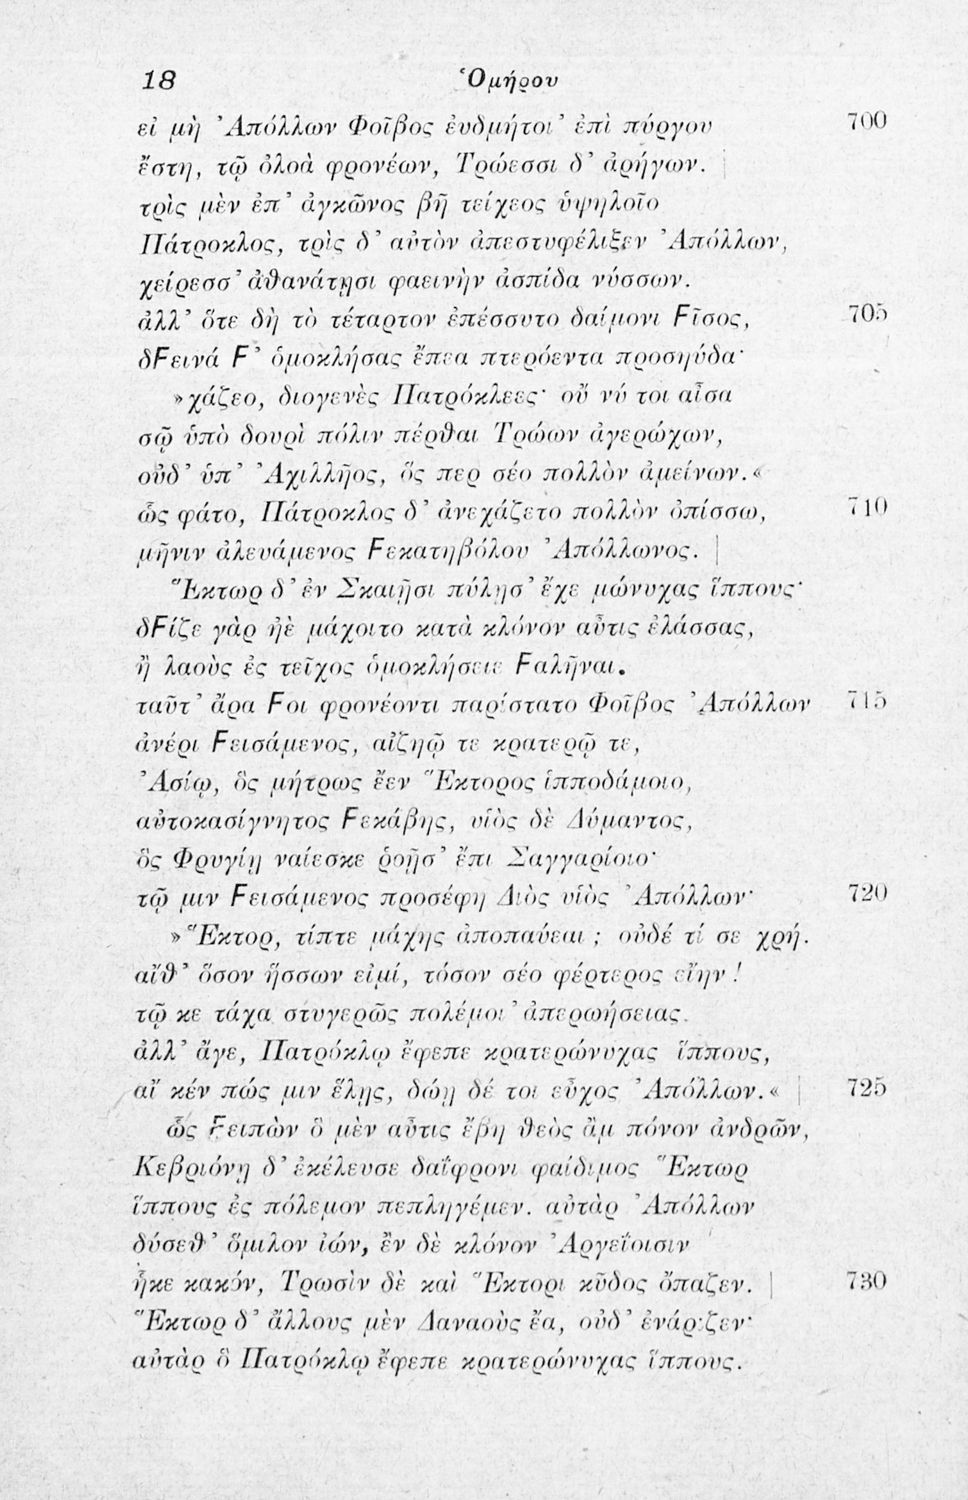 18 Ὁμήρου
εἰ μὴ Ἀπόλλων Φοῖβος ἐυδμήτοι' ἐπὶ πύργου 700
ἔστη, τῷ ὀλοὰ φρονέων, Τρώεσσι δ' ἀρήγων.
τρὶς μὲν ἐπ' ἀγκῶνος βῆ τείχεος ὑψηλοῖο
Πάτροκλος, τρὶς δ' αὐτὸν ἀπεστυφέλιξεν Ἀπόλλων,
χείρεσσ' ἀθανάτῃσι φαεινὴν ἀσπίδα νύσσων.
ἀλλ' ὅτε δὴ τὸ τέταρτον ἐπέσσυτο δαίμονι Ϝῖσος, 705
δϜεινά Ϝ' ὁμοκλήσας ἔπεα πτερόεντα προσηύδα·
»χάζεο, διογενὲς Πατρόκλεες· οὔ νύ τοι αἶσα
σῷ ὑπὸ δουρὶ πόλιν πέρθαι Τρώων ἀγερώχων,
οὐδ' ὑπ' Ἀχιλλῆος, ὅς περ σέο πολλὸν ἀμείνων.«
ὣς φάτο, Πάτροκλος δ' ἀνεχάζετο πολλὸν ὀπίσσω, 710
μῆνιν ἀλευάμενος Ϝεκατηβόλου Ἀπόλλωνος.
Ἕκτωρ δ' ἐν Σκαιῇσι πύλῃσ' ἔχε μώνυχας ἵππους·
δϜίζε γὰρ ἠὲ μάχοιτο κατὰ κλόνον αὖτις ἐλάσσας,
ἦ λαοὺς ἐς τεῖχος ὁμοκλήσειε Ϝαλῆναι.
ταῦτ' ἄρα Ϝοι φρονέοντι παρίστατο Φοῖβος Ἀπόλλων 715
ἀνέρι Ϝεισάμενος, αἰζηῷ τε κρατερῷ τε,
Ἀσίῳ, ὃς μήτρως ἔεν Ἕκτορος ἱπποδάμοιο,
αὐτοκασίγνητος Ϝεκάβης, υἱὸς δὲ Δύμαντος,
ὃς Φρυγίῃ ναίεσκε ῥοῇσ' ἔπι Σαγγαρίοιο·
τῷ μιν Ϝεισάμενος προσέφη Διὸς υἱὸς Ἀπόλλων· 720
»Ἕκτορ, τίπτε μάχης ἀποπαύεαι; οὐδέ τί σε χρή.
αἴθ' ὅσον ἥσσων εἰμί, τόσον σέο φέρτερος εἴην!
τῷ κε τάχα στυγερῶς πολέμοι' ἀπερωήσειας.
ἀλλ' ἄγε, Πατρόκλῳ ἔφεπε κρατερώνυχας ἵππους,
αἴ κέν πώς μιν ἕλῃς, δώῃ δέ τοι εὖχος Ἀπόλλων.« 725
ὣς Ϝειπὼν ὃ μὲν αὖτις ἔβη θεὸς ἂμ πόνον ἀνδρῶν,
Κεβριόνῃ δ' ἐκέλευσε δαΐφρονι φαίδιμος Ἕκτωρ
ἵππους ἐς πόλεμον πεπληγέμεν. αὐτὰρ Ἀπόλλων
δύσεθ' ὅμιλον ἰών, ἐν δὲ κλόνον Ἀργεΐοισιν
ἧκε κακόν, Τρωσὶν δὲ καὶ Ἕκτορι κῦδος ὄπαζεν. 730
Ἕκτωρ δ' ἄλλους μὲν Δαναοὺς ἔα, οὐδ' ἐνάριζεν·
αὐτὰρ ὃ Πατρόκλῳ ἔφεπε κρατερώνυχας ἵππους.